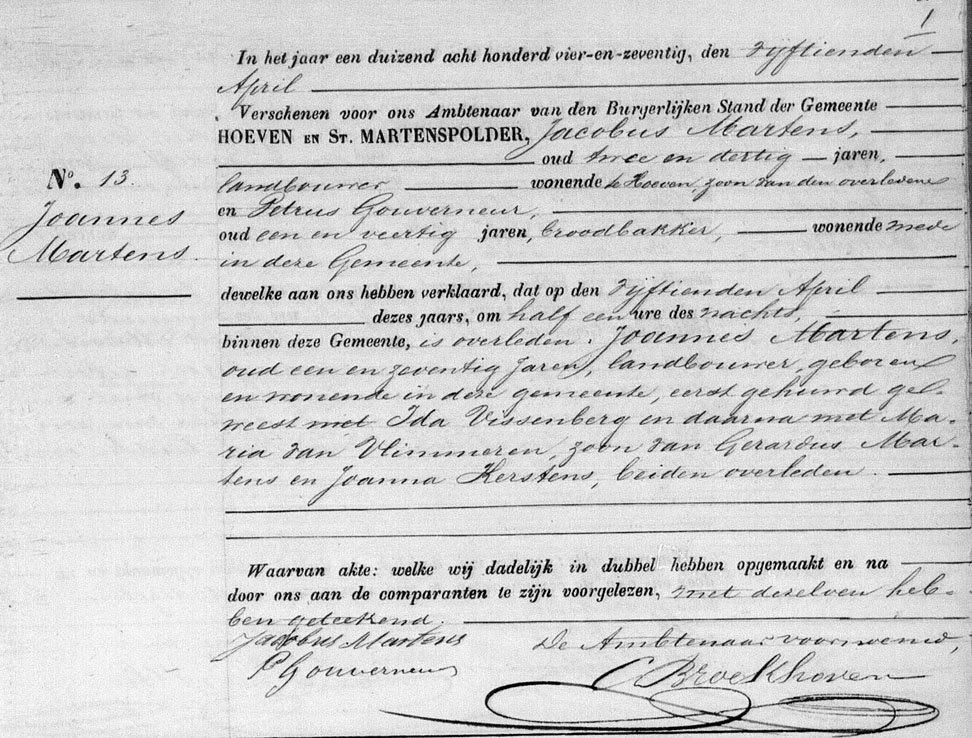 1
In het jaar een duizend acht honderd vier-en-zeventig, den vijftienden
April
Verschenen voor ons Ambtenaar van den Burgerlijken Stand der Gemeente
HOEVEN EN ST. MARTENSPOLDER, Jacobus Martens,
oud twee en dertig jaren,
No. 13.
landbouwer wonende te Hoeven, zoon van den overledene
Joannes
en Petrus Gouverneur,
oud een en veertig jaren, broodbakker, wonende mede
Martens.
in deze Gemeente,
dewelke aan ons hebben verklaard, dat op den vijftienden April
dezes jaars, om half een ure des nachts,
binnen deze Gemeente, is overleden: Joannes Martens,
oud een en zeventig Jaren, landbouwer, geboren
en wonende in deze gemeente, eerst gehuwd ge-
weest met Ida Vissenberg en daarna met Ma-
ria van Vlimmeren, zoon van Gerardus Mar-
tens en Joanna Kerstens, beiden overleden.
Waarvan akte: welke wij dadelijk in dubbel hebben opgemaakt en na
door ons aan de comparanten te zijn voorgelezen, met dezelven heb-
ben geteekend.
Jacobus Martens De Ambtenaar voornoemd,
P Gouverneur C. Broekhoven